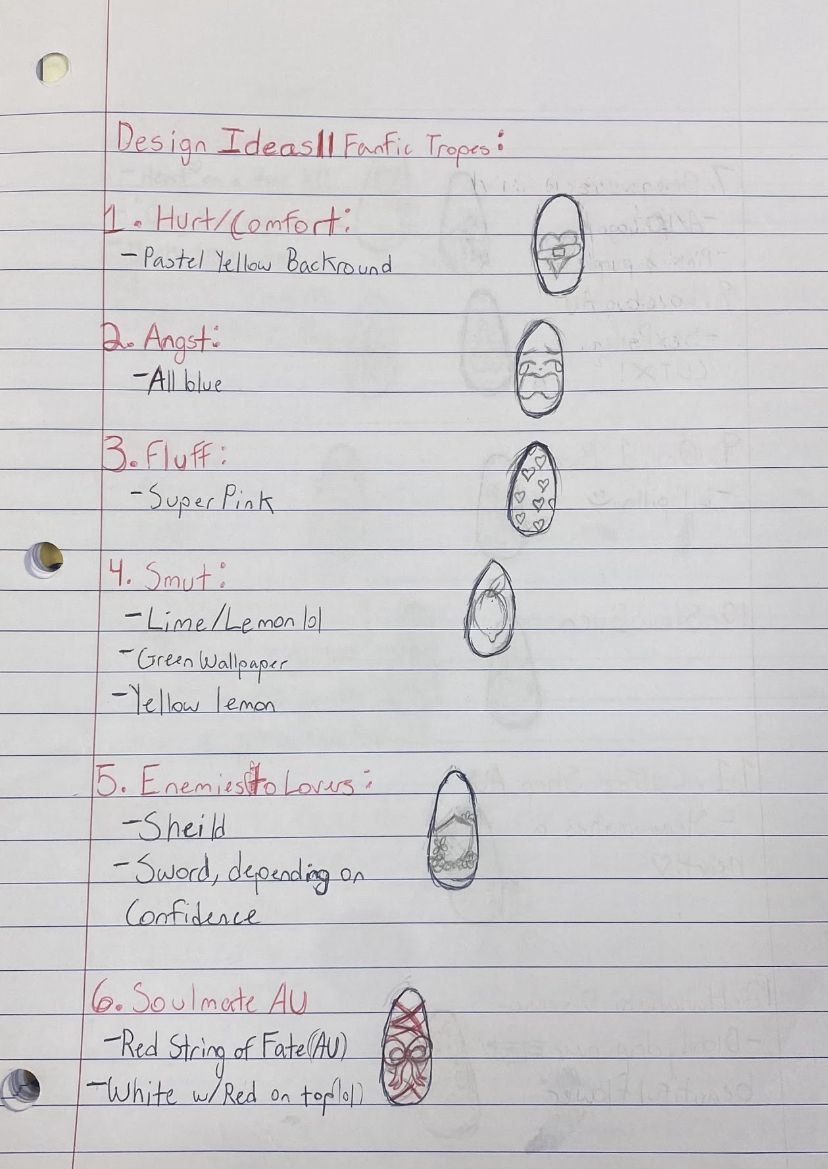 Design Ideas|| Fanfic Tropes:
1. Hurt/Comfort:
- Pastel Yellow Backround
2. Angst:
- All blue
3. Fluff:
- Super Pink
4. Smut:
- Lime/Lemon lol
- Green Wallpaper
- Yellow lemon
5. Enemies to Lovers:
- Sheild
- Sword, depending on
Confidence
6. Soulmate AU
- Red String of Fate (AU)
- White w/ Red on top (lol)